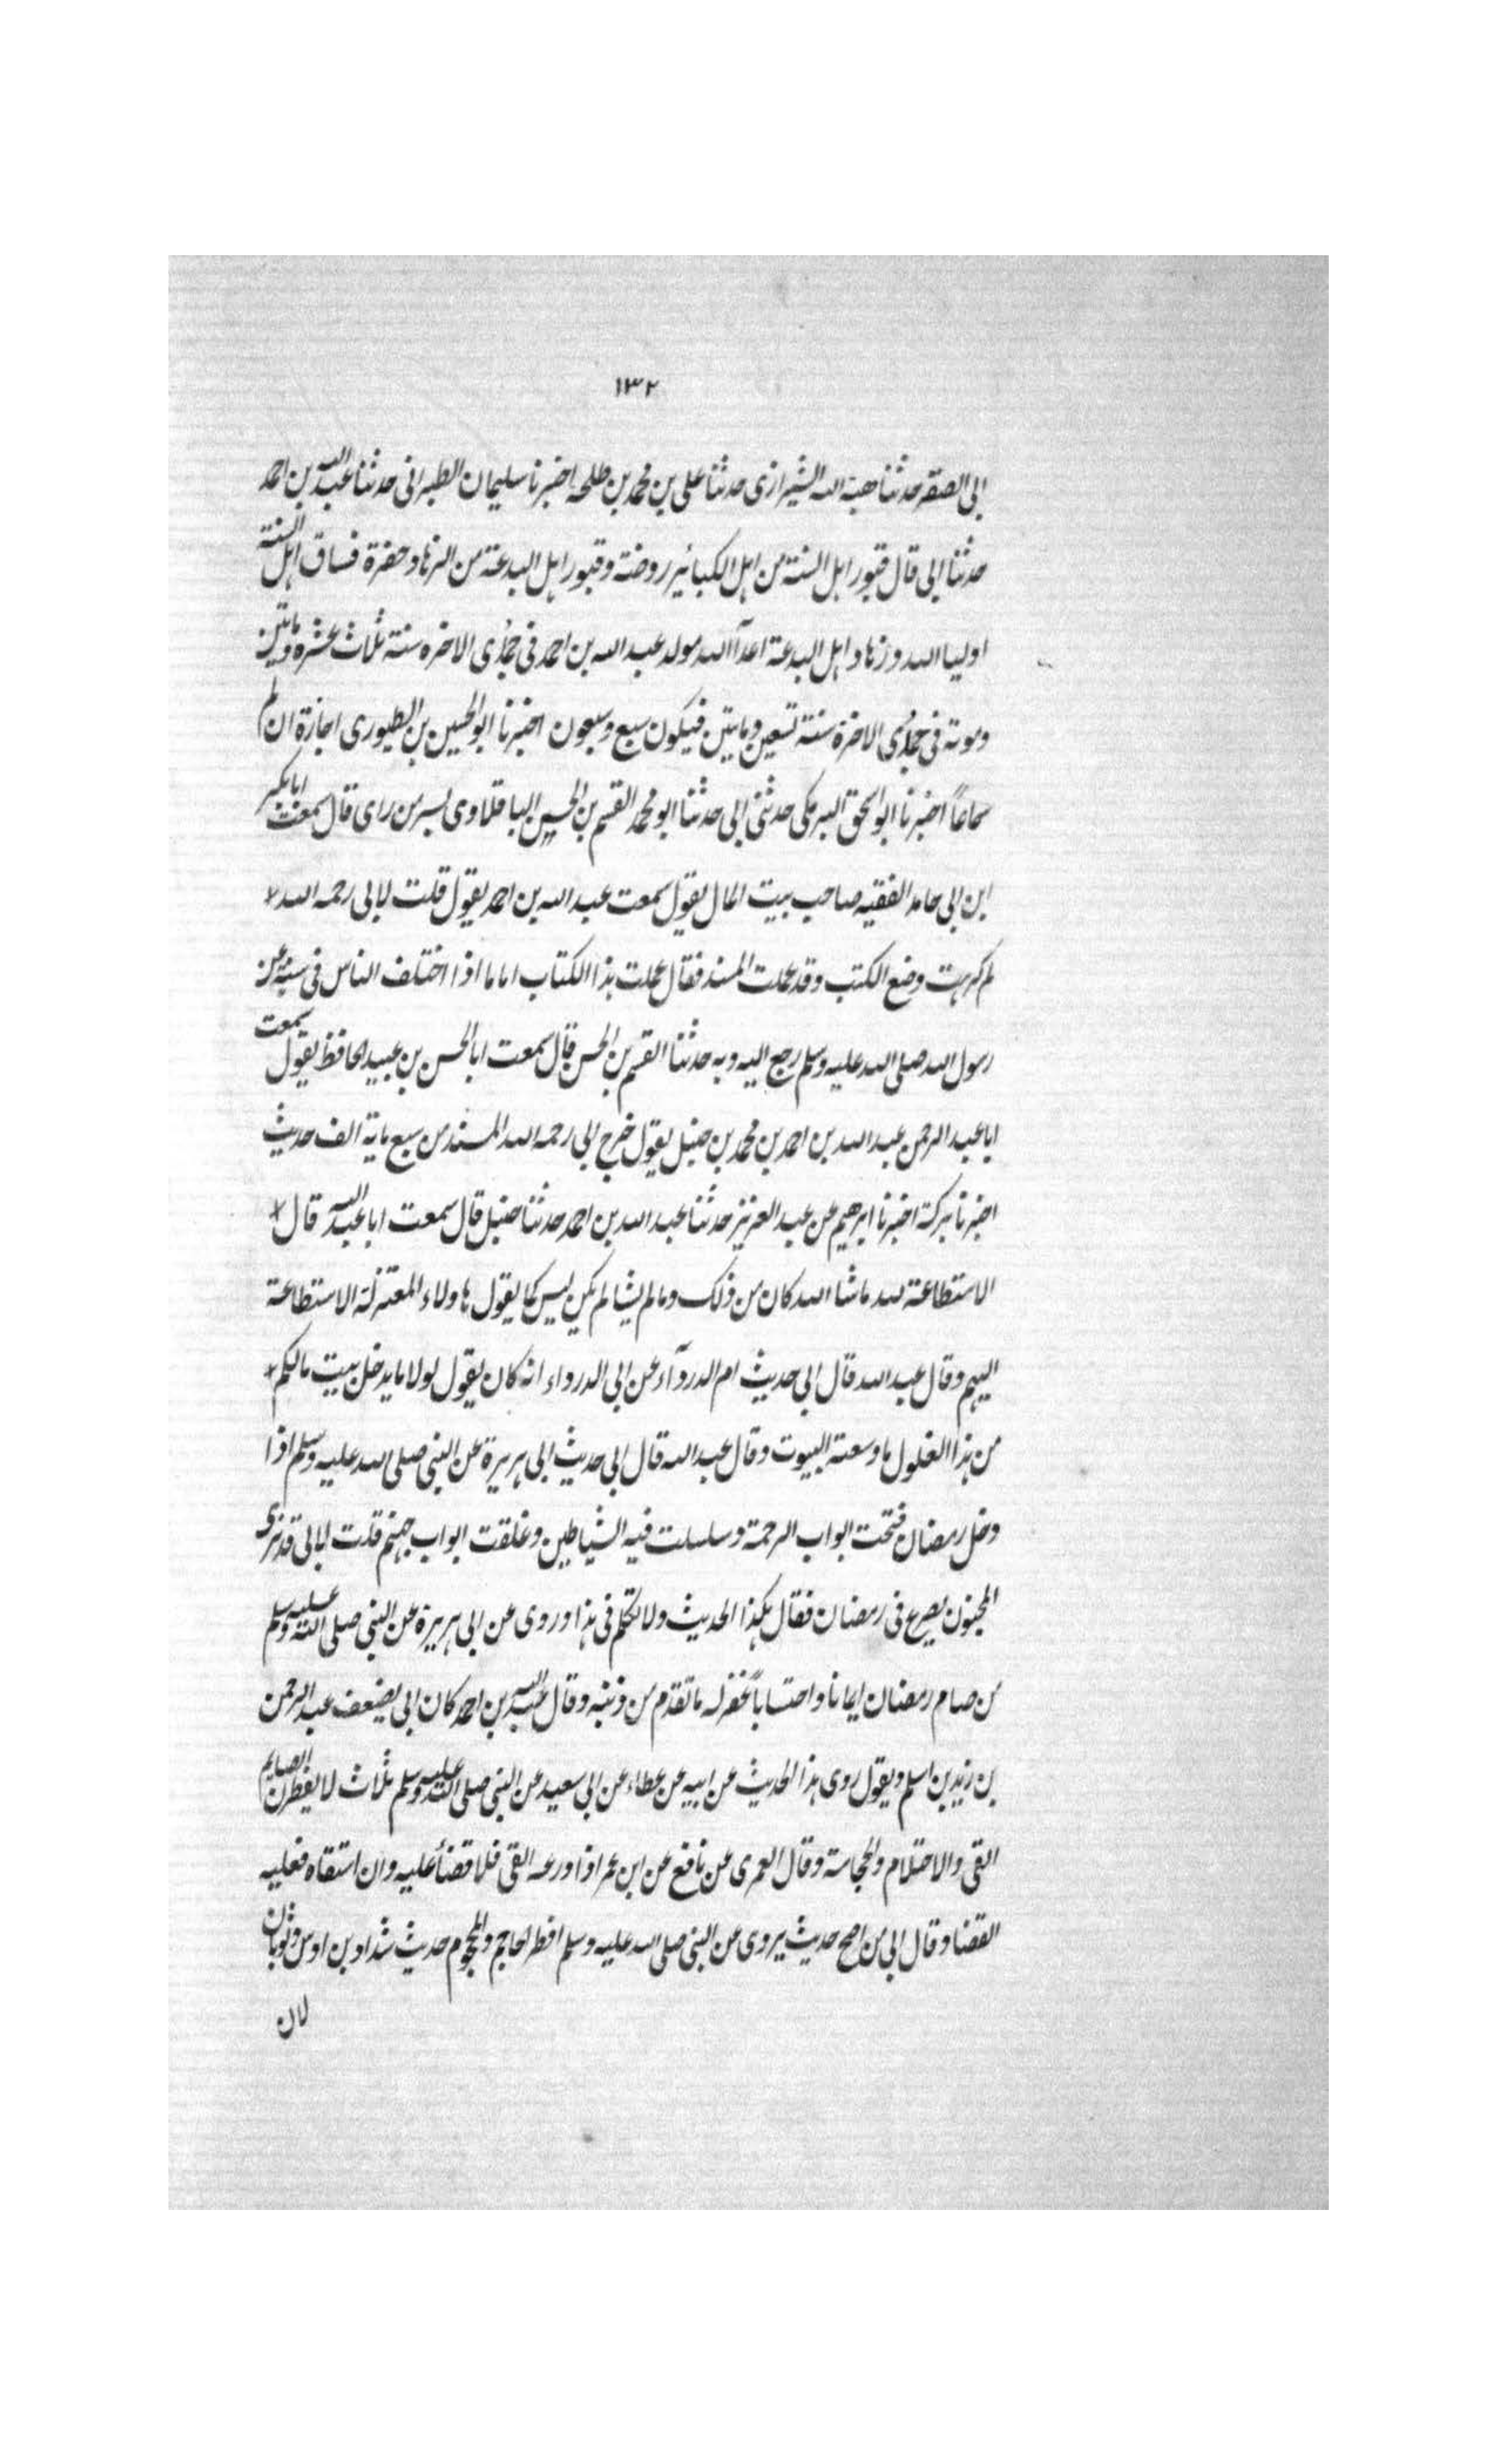 ١٣٢
ابى الصقر حدثنا هبة الله الشيرازى حدثنا على بن محمد بن طلحه اخبرنا سليمان الطبرانى حدثنا عبد الله بن احمد
حدثنا ابى قال قبور اهل السنة من اهل الكبائير روضة وقبور اهل البدعة من الزهاد حفرة فساق اهل السنة
اوليا الله وزهاد اهل البدعة اعدآ الله مولد عبد الله بن احمد فى جمادى الاخره سنة ثلاث عشره وماتين
وموته فى جمادى الاخرة سنة تسعين وماتين فيكون سبع وسبعون اخبرنا ابو الحسين بن الطيورى اجازة ان لم
سماعاً اخبرنا ابو اسحق البرمكى حدثنى ابى حدثنا ابو محمد القسم بن الحسين الباقلاوى بسر من راى قال سمعت ابا بكير
ابن ابى حامد الفقيه صاحب بيت المال يقول سمعت عبد الله بن احمد يقول قلت لابى رحمه الله
لم كرهت وضع الكتب وقد عملت المسند فقال عملت هذا الكتاب اماما اذا اختلف الناس فى سنة عن
رسول الله صلى الله عليه وسلم رجع اليه وبه حدثنا القسم بن الحسن قال سمعت ابا الحسن بن عبيد الحافظ يقول سمعت
ابا عبد الرحمن عبد الله بن احمد بن محمد بن حنبل يقول خرج ابى رحمه الله المسند من سبع ماية الف حديث
اخبرنا بركة اخبرنا ابرهيم عن عبد العزيز حدثنا عبد الله بن احمد حدثنا حنبل قال سمعت ابا عبد الله قال
الاستطاعة لله ماشا الله كان من ذلك وما لم يشا لم يكن ليس كما يقول هاولاء المعتزلة الاستطاعة
اليهم وقال عبد الله قال ابى حديث ام الدردآء عن ابى الدرداء انه كان يقول لولا ما يدخل بيت مالكم
من هذا الغلول ما وسعته البيوت وقال عبد الله قال ابى حديث ابى هريرة عن النبى صلى الله عليه وسلم اذا
دخل رمضان فتحت ابواب الرحمة وسلسلت فيه الشياطين وغلقت ابواب جهنم قلت لابى قد نرى
المجنون يصرع فى رمضان فقال هكذا الحديث ولا تكلم فى هذا وروى عن ابى هريرة عن النبى صلى الله عليه وسلم
من صام رمضان ايمانا واحتساباً غفر له ما تقدم من ذنبه وقال عبد الله بن احمد كان ابى يضعف عبد الرحمن
بن زيد بن اسلم ويقول روى هذا الحديث عن ابيه عن عطاء عن ابى سعيد عن النبى صلى الله عليه وسلم ثلاث لا يفطرن الصايم
القى والاحتلام والحجامة وقال العمرى عن نافع عن ابن عمر اذا ورعه القى فلا قضأ عليه وان استقاه فعليه
القضا وقال ابى من اصح حديث يروى عن النبى صلى الله عليه وسلم افطر الحاجم والمحجوم حديث شداد بن اوس وثوبان
لان